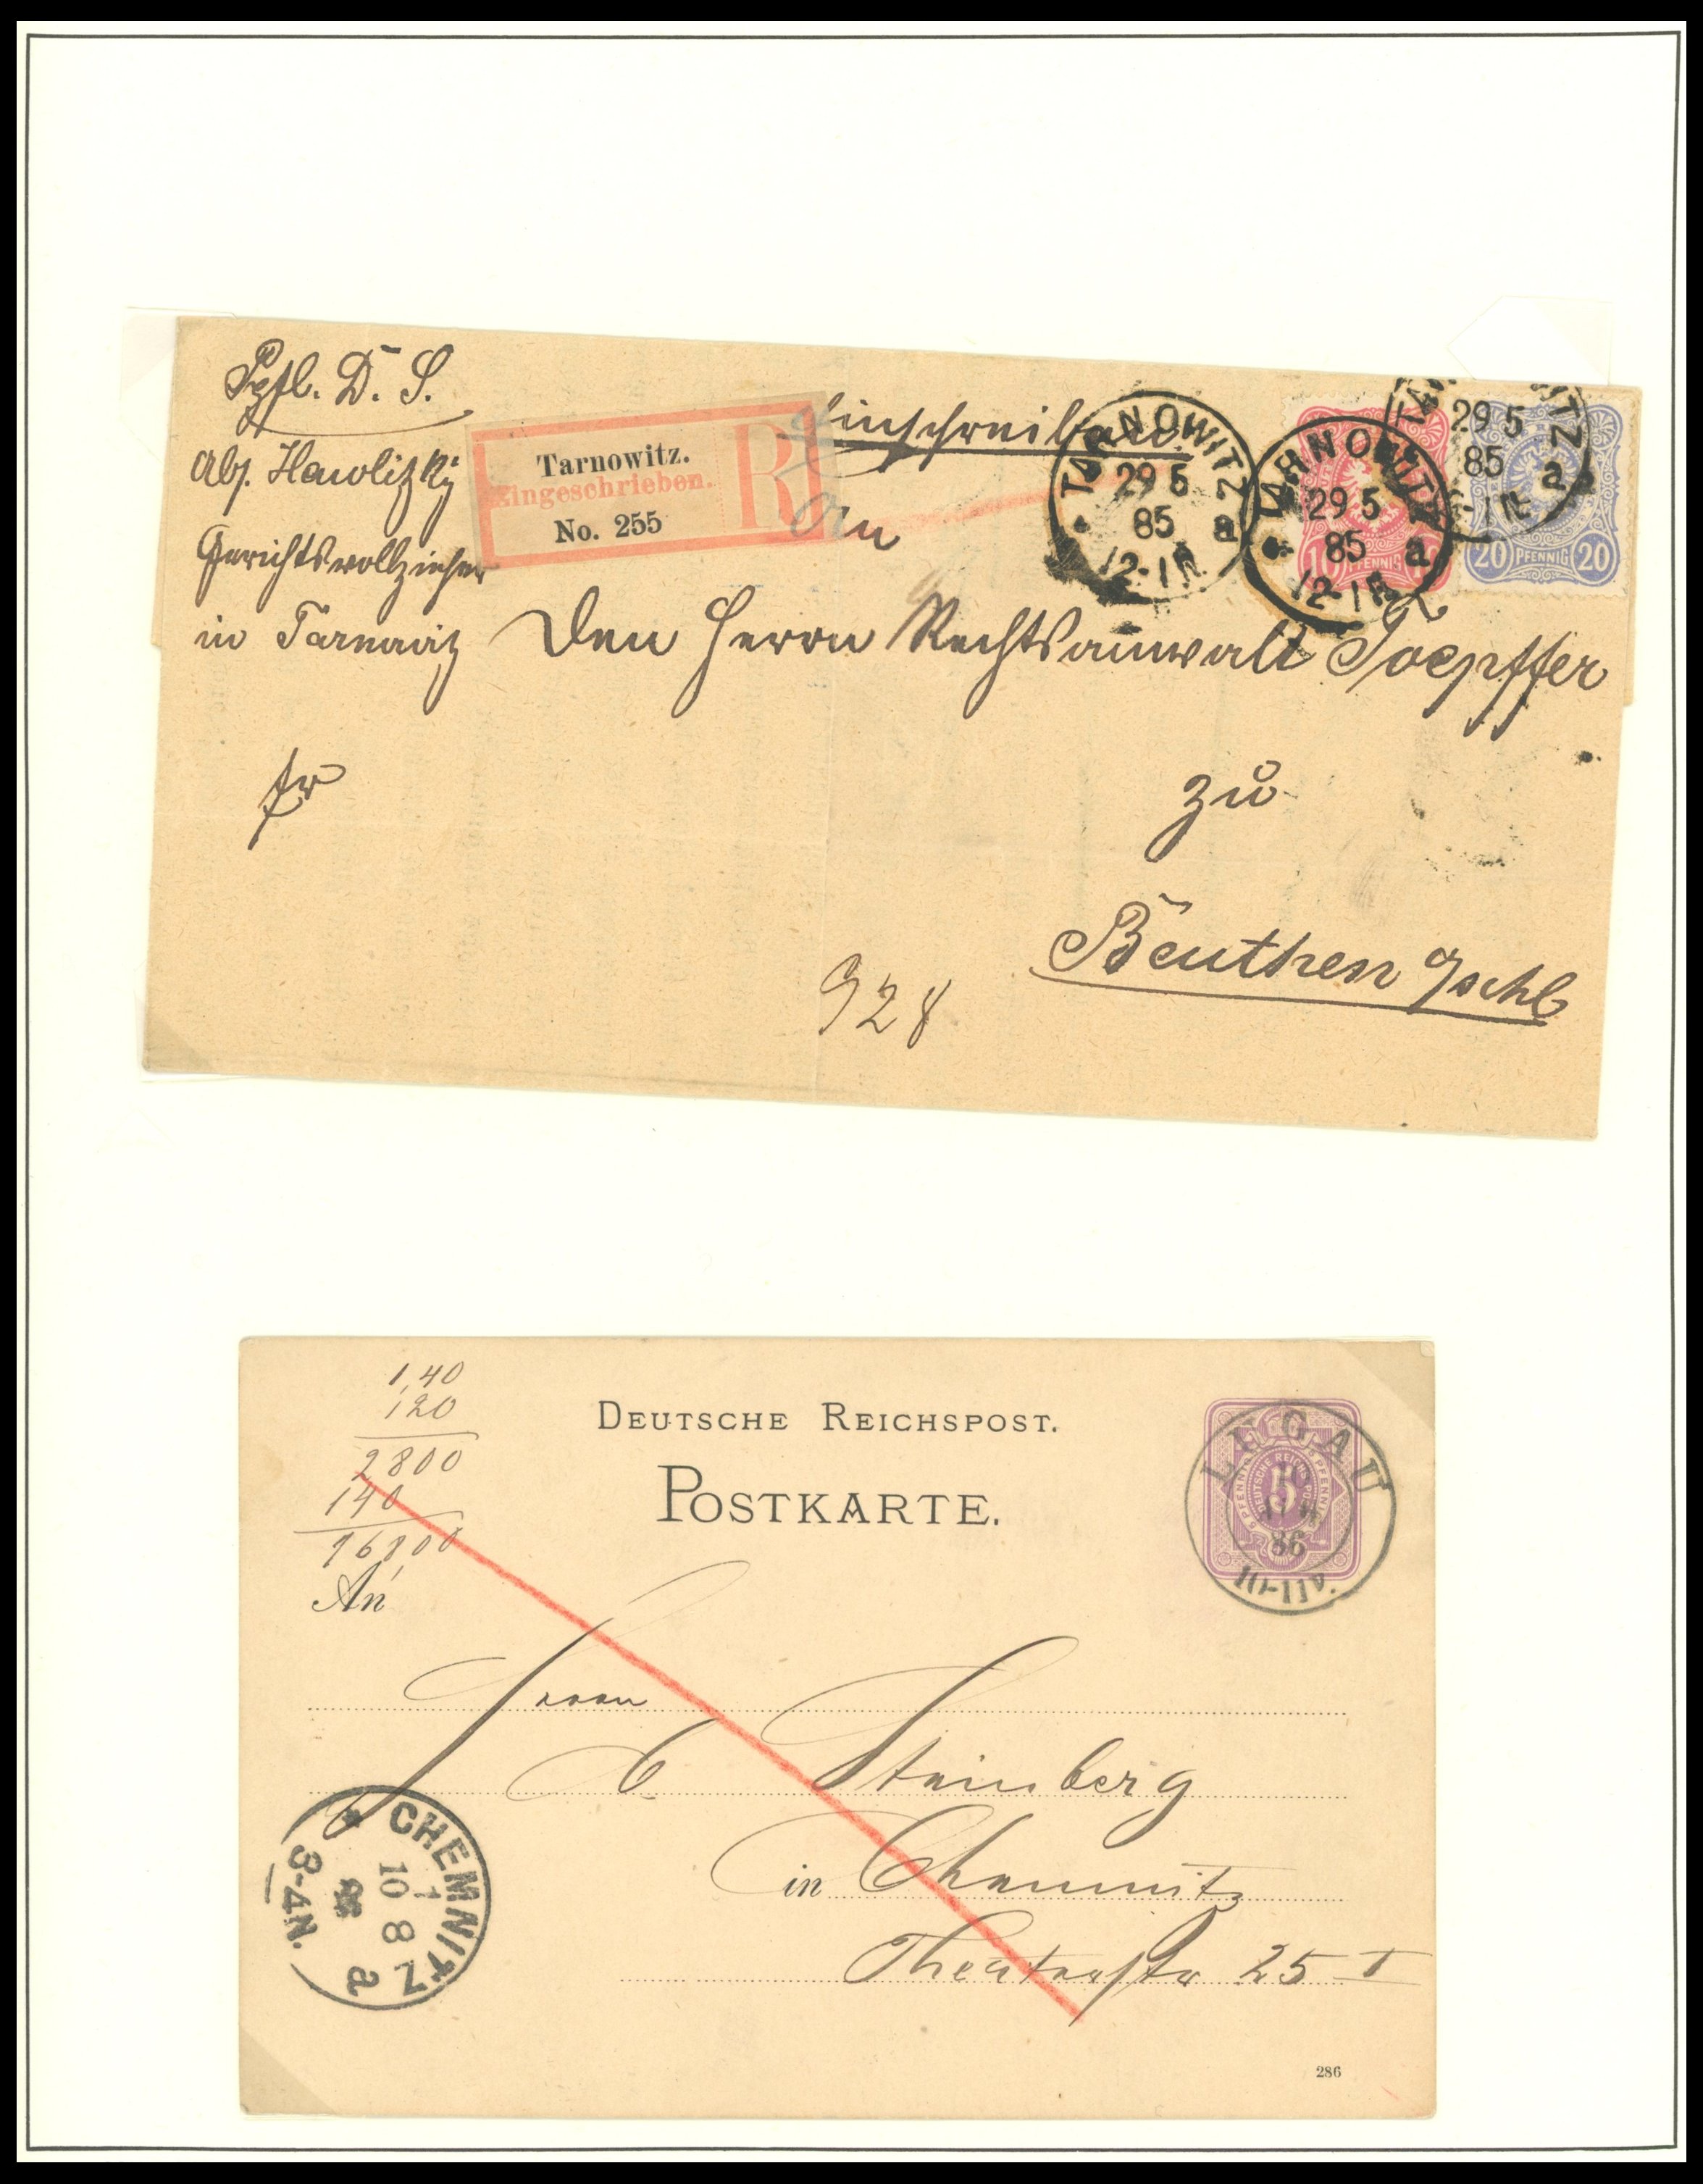 D. S.
Einschreiben
Abs. Hawlizky
Tarnowitz.
Eingeschrieben.
R
No. 255
An
Gerichtsvollzieher
in Tarnowitz
Den Herrn Rechtsanwalt Toepffer
fr
zu
Beuthen O/schl
928
TARNOWITZ
29 5
85
12-1N
a
TARNOWITZ
29 5
85
12-1N
a
TARNOWITZ
29 5
85
12-1N
a
10 PFENNIG 10
20 PFENNIG 20
1,40
120
2800
140
16800
DEUTSCHE REICHSPOST.
POSTKARTE.
LUGAU
86
10-11V.
5 PFENNIG
DEUTSCHE REICHSPOST
5
An
Herrn
Steinberg
in Chemnitz
Theaterstr 25 I
CHEMNITZ
1
10 8
86
3-4N.
a
286